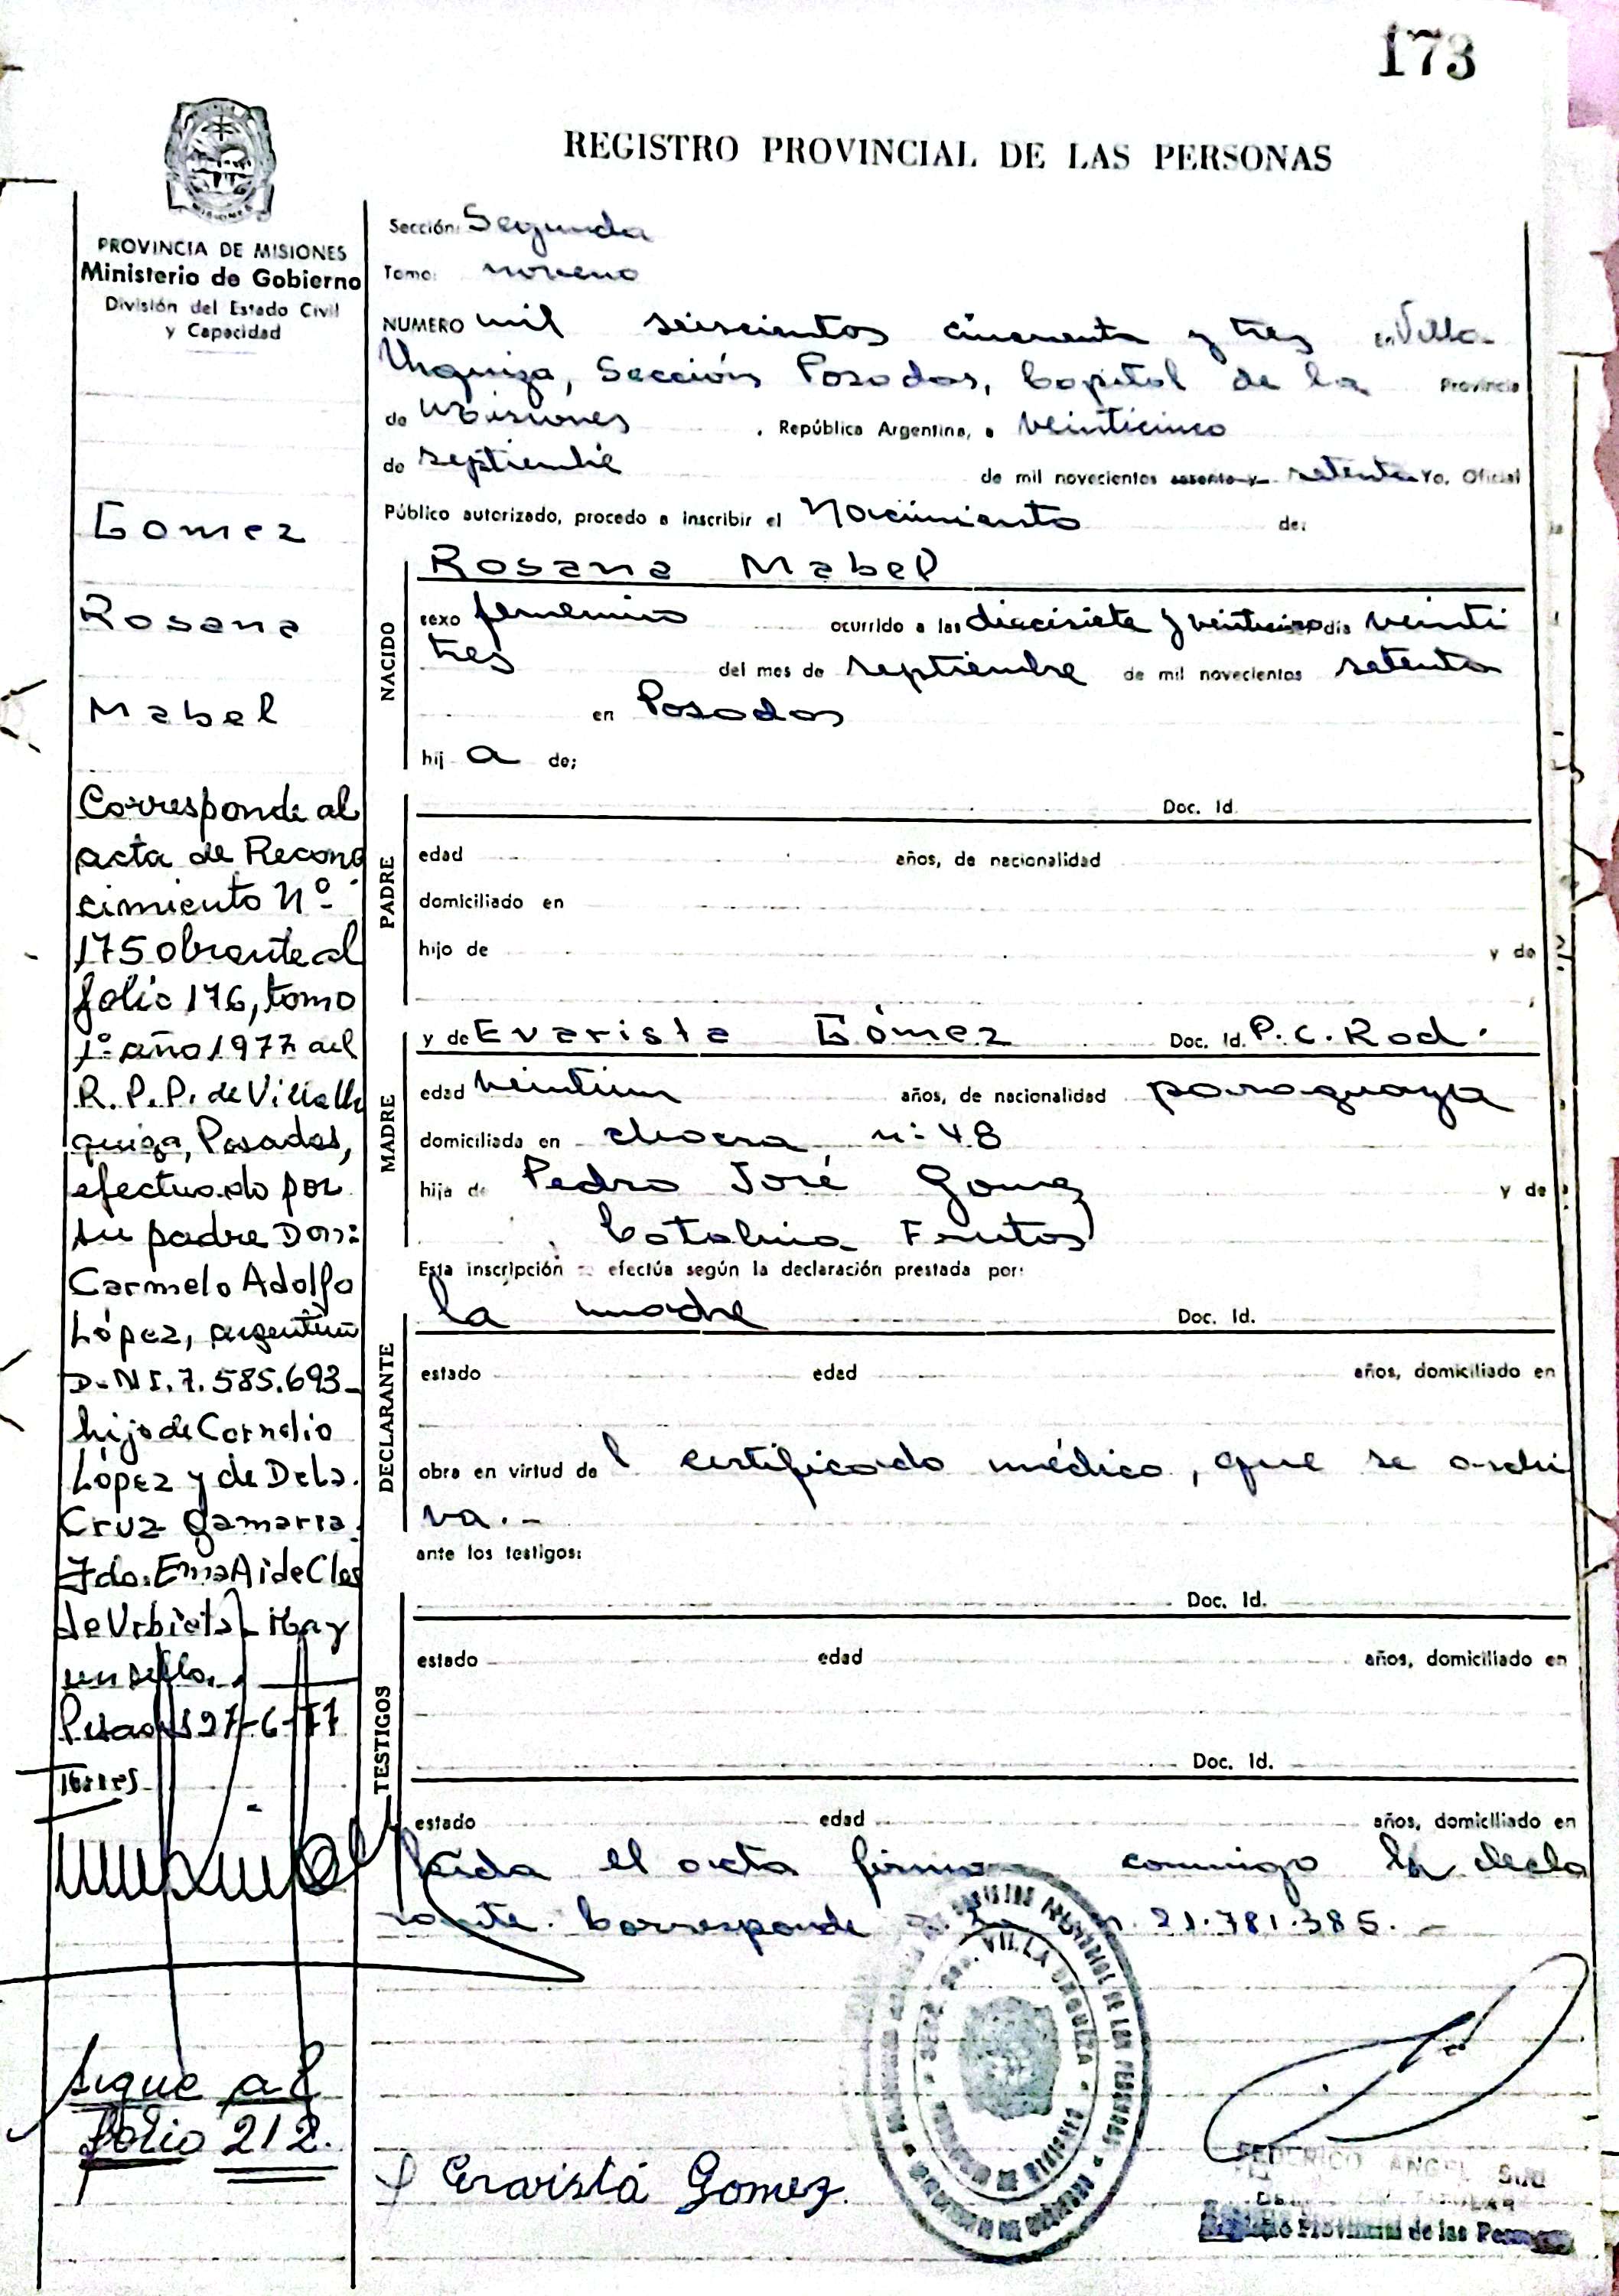 173
REGISTRO PROVINCIAL DE LAS PERSONAS
MISIONES
PROVINCIA DE MISIONES
Ministerio de Gobierno
División del Estado Civil
y Capacidad
Gomez
Rosana
Mabel
Corresponde al
acta de Recono
cimiento Nº
175 obrante al
folio 176, tomo
1º año 1977 del
R.P.P. de Villa Ur
quiza, Posadas,
efectuado por
su padre Don:
Carmelo Adolfo
López, argentino
D.N.I. 7.585.693-
hijo de Cornelio
López y de Dela
Cruz Gamarra.
Fdo: Ema Aide Clos
de Urbieta - Hay
un sello.
Posadas 27-6-77
Torres
sigue al
folio 212.
Sección: Segunda
Tomo: noveno
NUMERO mil seiscientos cincuenta y tres en Villa
Urquiza, Sección Posadas, Capital de la Provincia
de Misiones , República Argentina, a veinticinco
de septiembre de mil novecientos sesenta y setenta Yo, Oficial
Público autorizado, procedo a inscribir el Nacimiento de:
NACIDO
Rosana Mabel
sexo femenino ocurrido a las diecisiete y veinticinco día veinti
tres del mes de septiembre de mil novecientos setenta
en Posadas
hij a de:
PADRE
Doc. Id.
edad años, de nacionalidad
domiciliado en
hijo de y de
MADRE
y de Evarista Gómez Doc. Id. P.C. Rad.
edad veintiun años, de nacionalidad paraguaya
domiciliada en chacra n: 48
hija de Pedro José Gomez y de
Catalina Frutos
Esta inscripción se efectúa según la declaración prestada por:
DECLARANTE
la madre Doc. Id.
estado edad años, domiciliado en
obra en virtud de l certificado médico, que se archi
va.-
ante los testigos:
TESTIGOS
Doc. Id.
estado edad años, domiciliado en
Doc. Id.
estado edad años, domiciliado en
Leida el acta firma conmigo la decla
rante. Corresponde 21.781.385.-
VILLA URQUIZA
Evarista Gomez.
FEDERICO ANGEL
Provincial de las